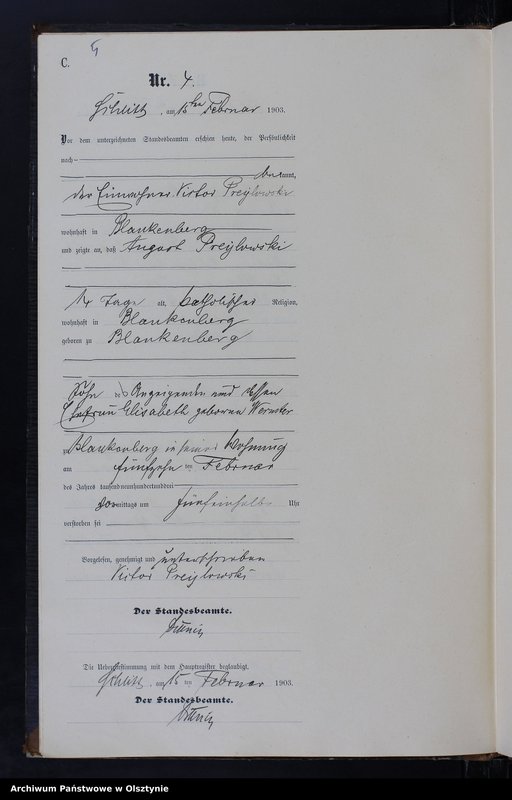 C. 5
Nr. 4.
Schlitt, am 15ten Februar 1903.
Vor dem unterzeichneten Standesbeamten erschien heute, der Persönlichkeit
nach
bekannt,
der Einwohner Victor Preylowski
wohnhaft in Blankenberg
und zeigte an, daß August Preylowski
14 Tage alt, katholischer Religion,
wohnhaft in Blankenberg
geboren zu Blankenberg
Sohn des Anzeigenden und dessen
Ehefrau Elisabeth geborenen
zu Blankenberg in seiner Wohnung
am fünfzehn ten Februar
des Jahres tausendneunhundertunddrei
Vormittags um Uhr
verstorben sei
Vorgelesen, genehmigt und unterschrieben
Victor Preylowski
Der Standesbeamte.
Die Uebereinstimmung mit dem Hauptregister beglaubigt.
Schlitt, am 15 ten Februar 1903.
Der Standesbeamte.
Archiwum Państwowe w Olsztynie